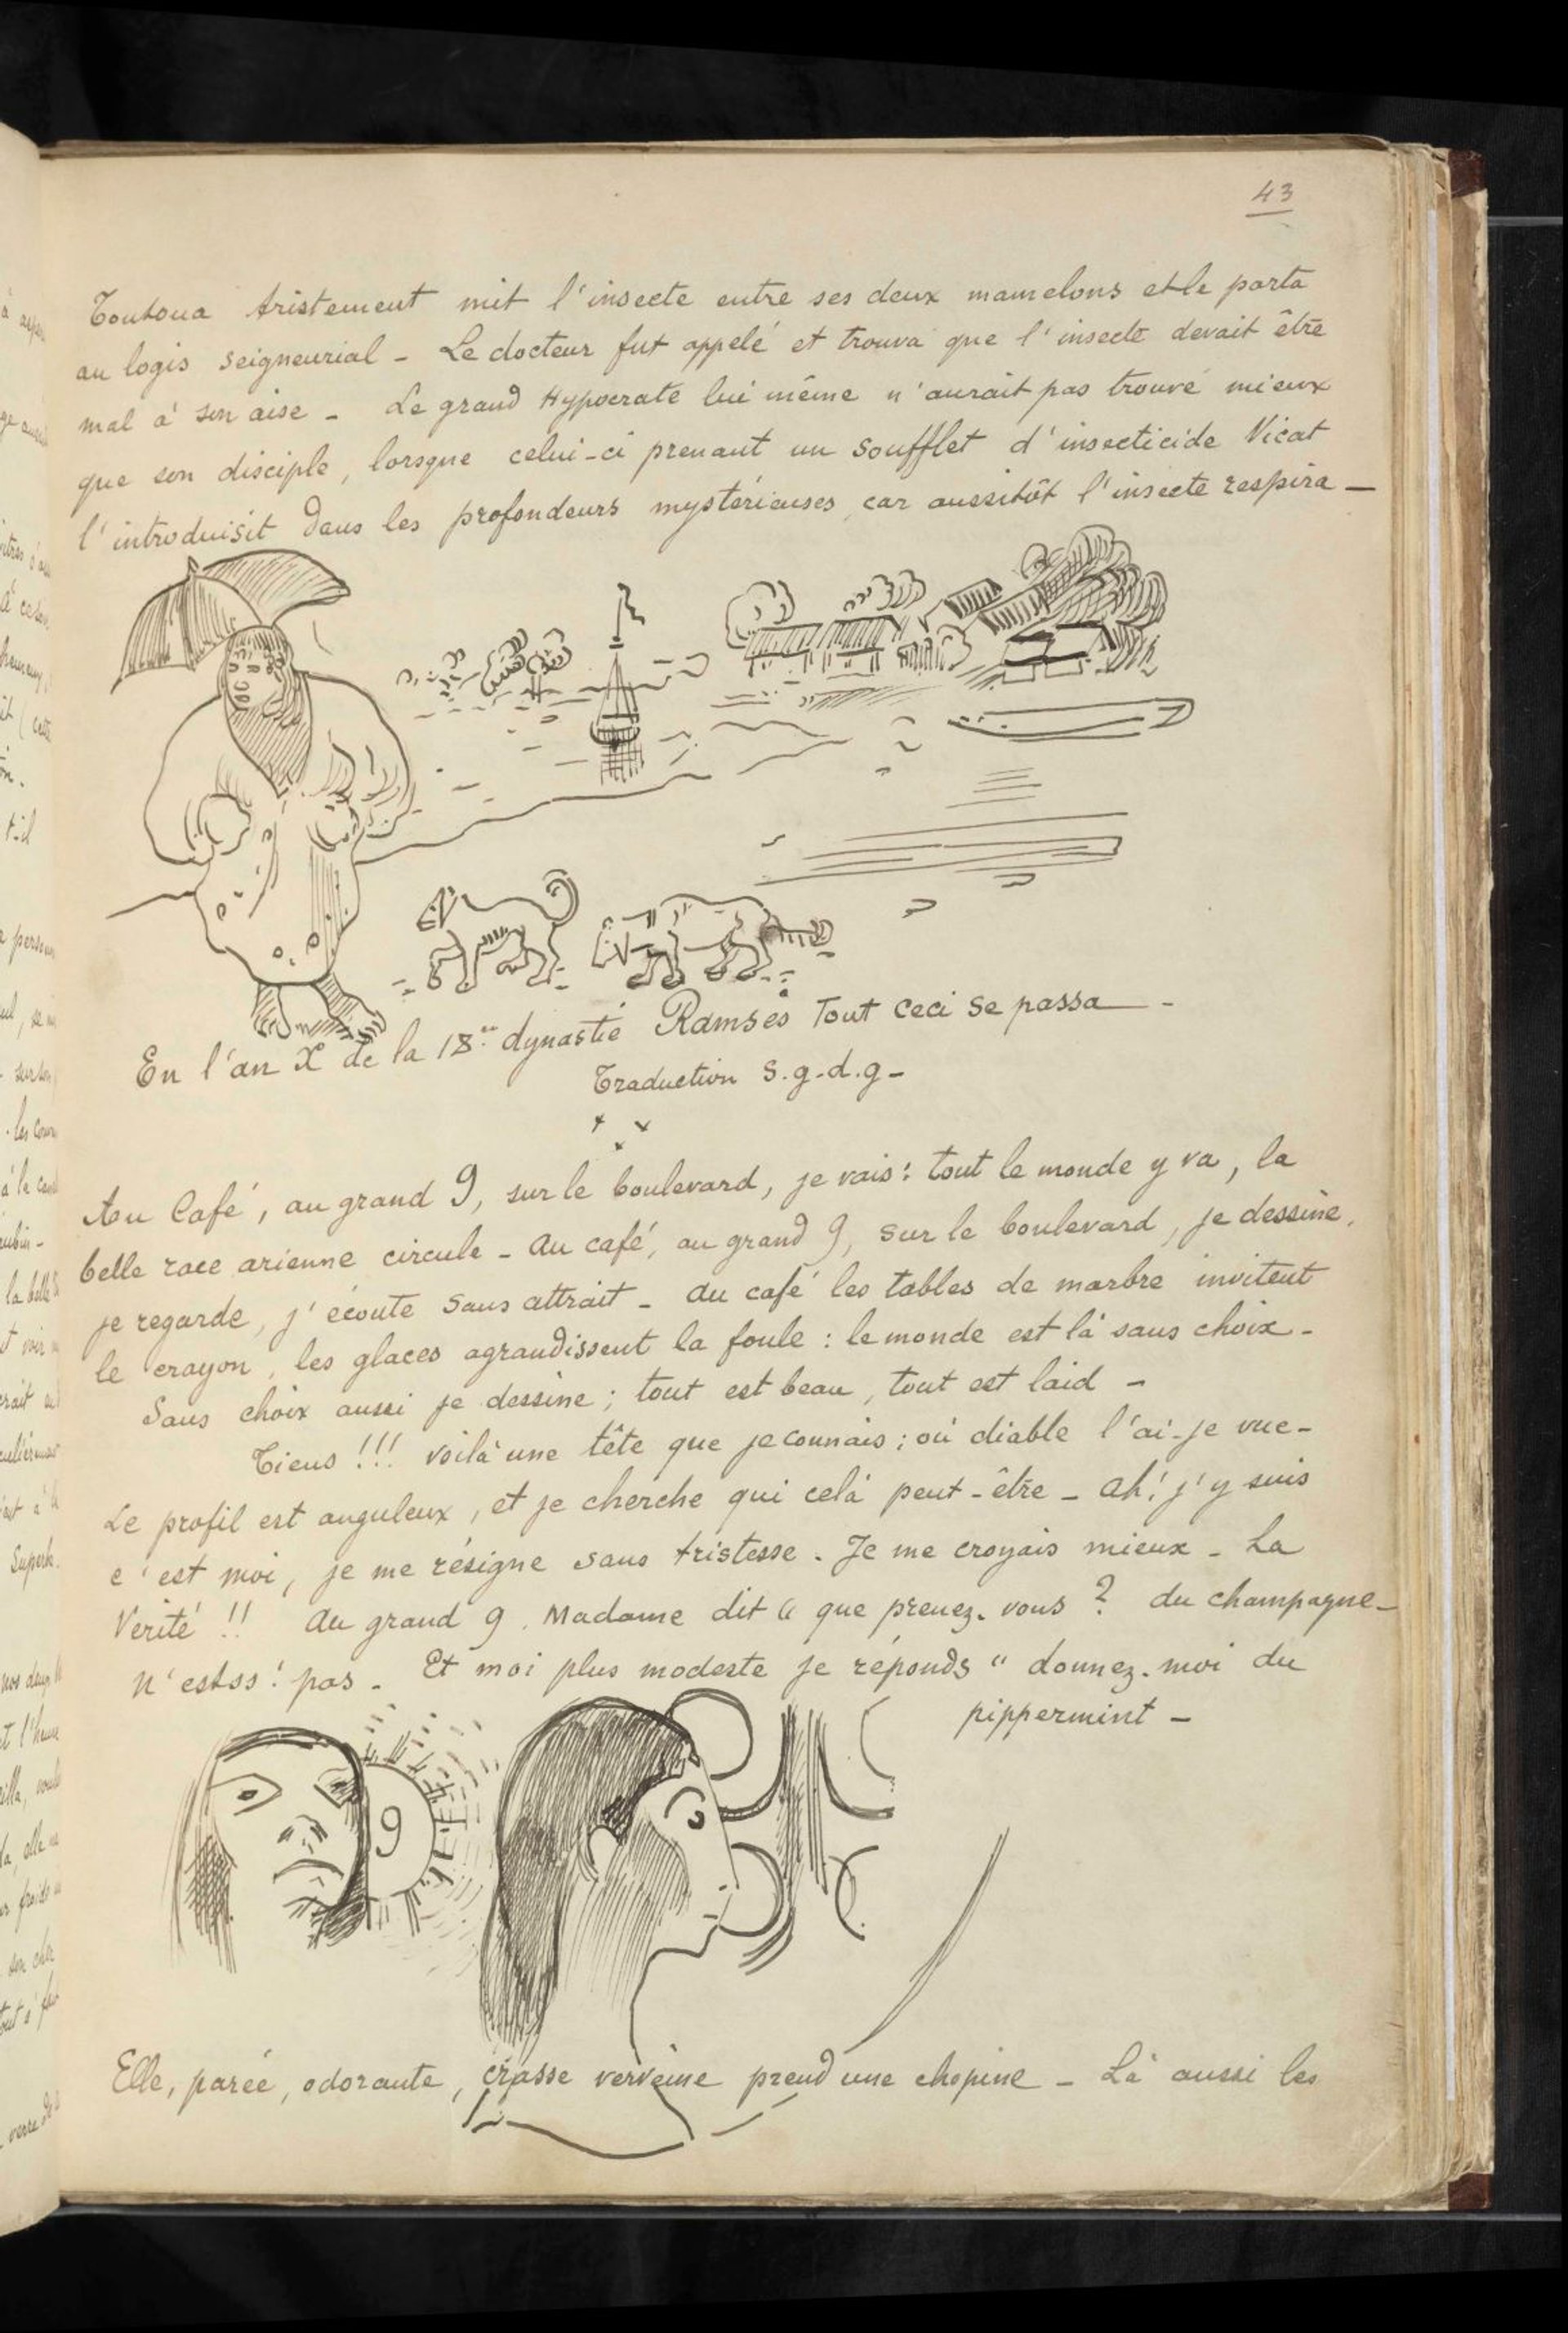 43
Toutoua tristement mit l'insecte entre ses deux mamelons et le porta
au logis seigneurial - Le docteur fut appelé et trouva que l'insecte devait être
mal à son aise - Le grand Hypocrate lui même n'aurait pas trouvé mieux
que son disciple, lorsque celui-ci prenant un soufflet d'insecticide Vicat
l'introduisit dans les profondeurs mystérieuses, car aussitôt l'insecte respira -
En l'an X de la 18e dynastie Ramsès Tout ceci se passa -
Traduction S.g.d.g-
Au Café, au grand 9, sur le boulevard, je vais: tout le monde y va, la
belle race arienne circule - Au café, au grand 9, sur le boulevard, je dessine,
je regarde, j'écoute sans attrait - Au café les tables de marbre invitent
le crayon, les glaces agrandissent la foule : le monde est là sans choix -
Sans choix aussi je dessine ; tout est beau, tout est laid -
Tiens !!! voilà une tête que je connais ; où diable l'ai-je vue -
Le profil est anguleux, et je cherche qui celà peut-être - Ah! j'y suis
c'est moi, je me résigne sans tristesse. Je me croyais mieux - La
Vérité !! Au grand 9. Madame dit " que prenez-vous ? du champagne -
n'estss! pas - Et moi plus modeste je réponds " donnez-moi du
pippermint -
9
Elle, parée, odorante, crasse verveine prend une chopine - Là aussi les